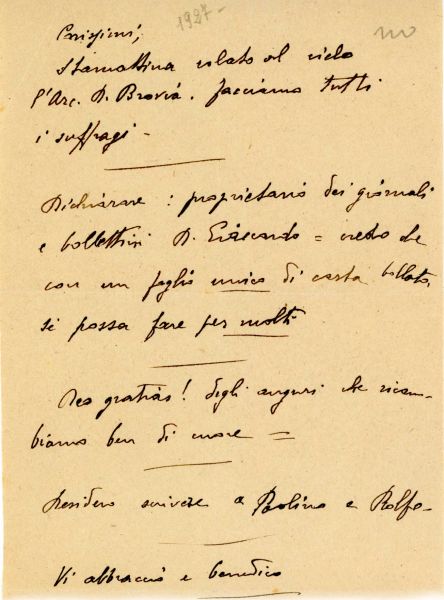 1927-
no
Carissimi,
Stamattina volato al cielo
l'Arc. D. Brovia. facciamo tutti
i suffragi -
Dichiarare: proprietario dei giornali
e bollettini D. Giaccardo = credo che
con un foglio unico di carta bollata
si possa fare per molti
Deo gratias! degli auguri che ricam-
biamo ben di cuore =
Desidero scrivere a Paolino e Rolfo-
Vi abbraccio e benedico